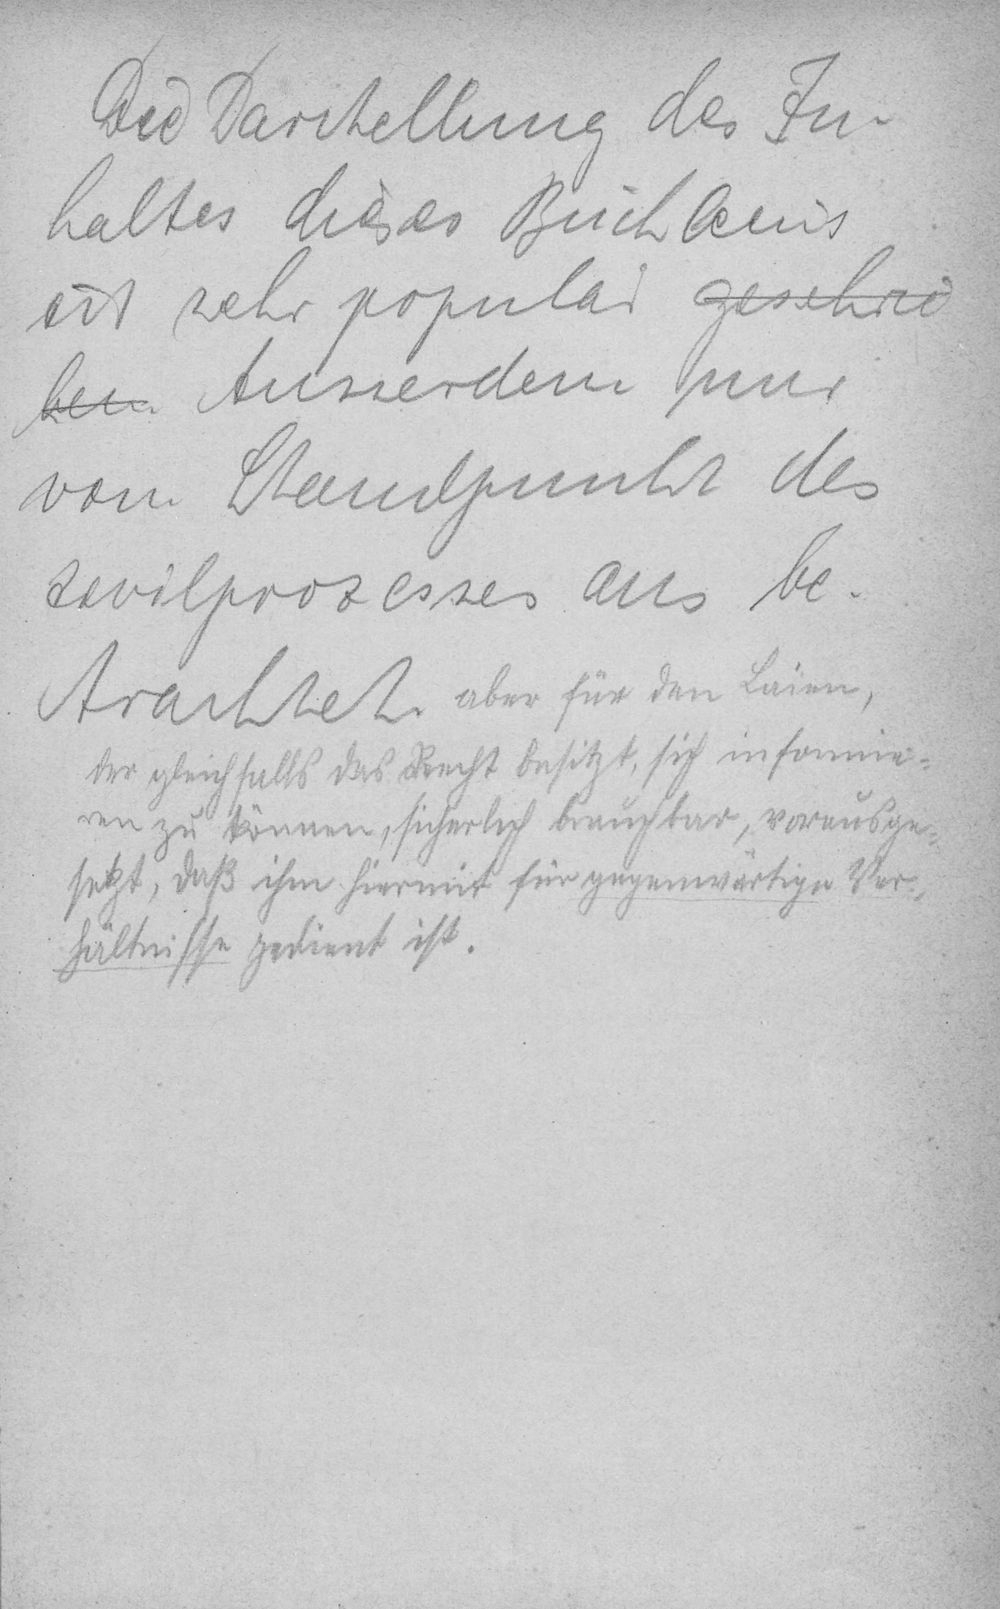 Die Darstellung des In-
haltes dieses Büchleins
ist sehr populär geschrie
ben Ausserdem nur
vom Standpunkt des
Zivilprozesses aus be-
trachtet. aber für den Laien,
der gleichfalls das Recht besitzt, sich informie-
ren zu können, sicherlich brauchbar, vorausge-
setzt, daß ihm hiermit für gegenwärtige Ver-
hältnisse gedient ist.